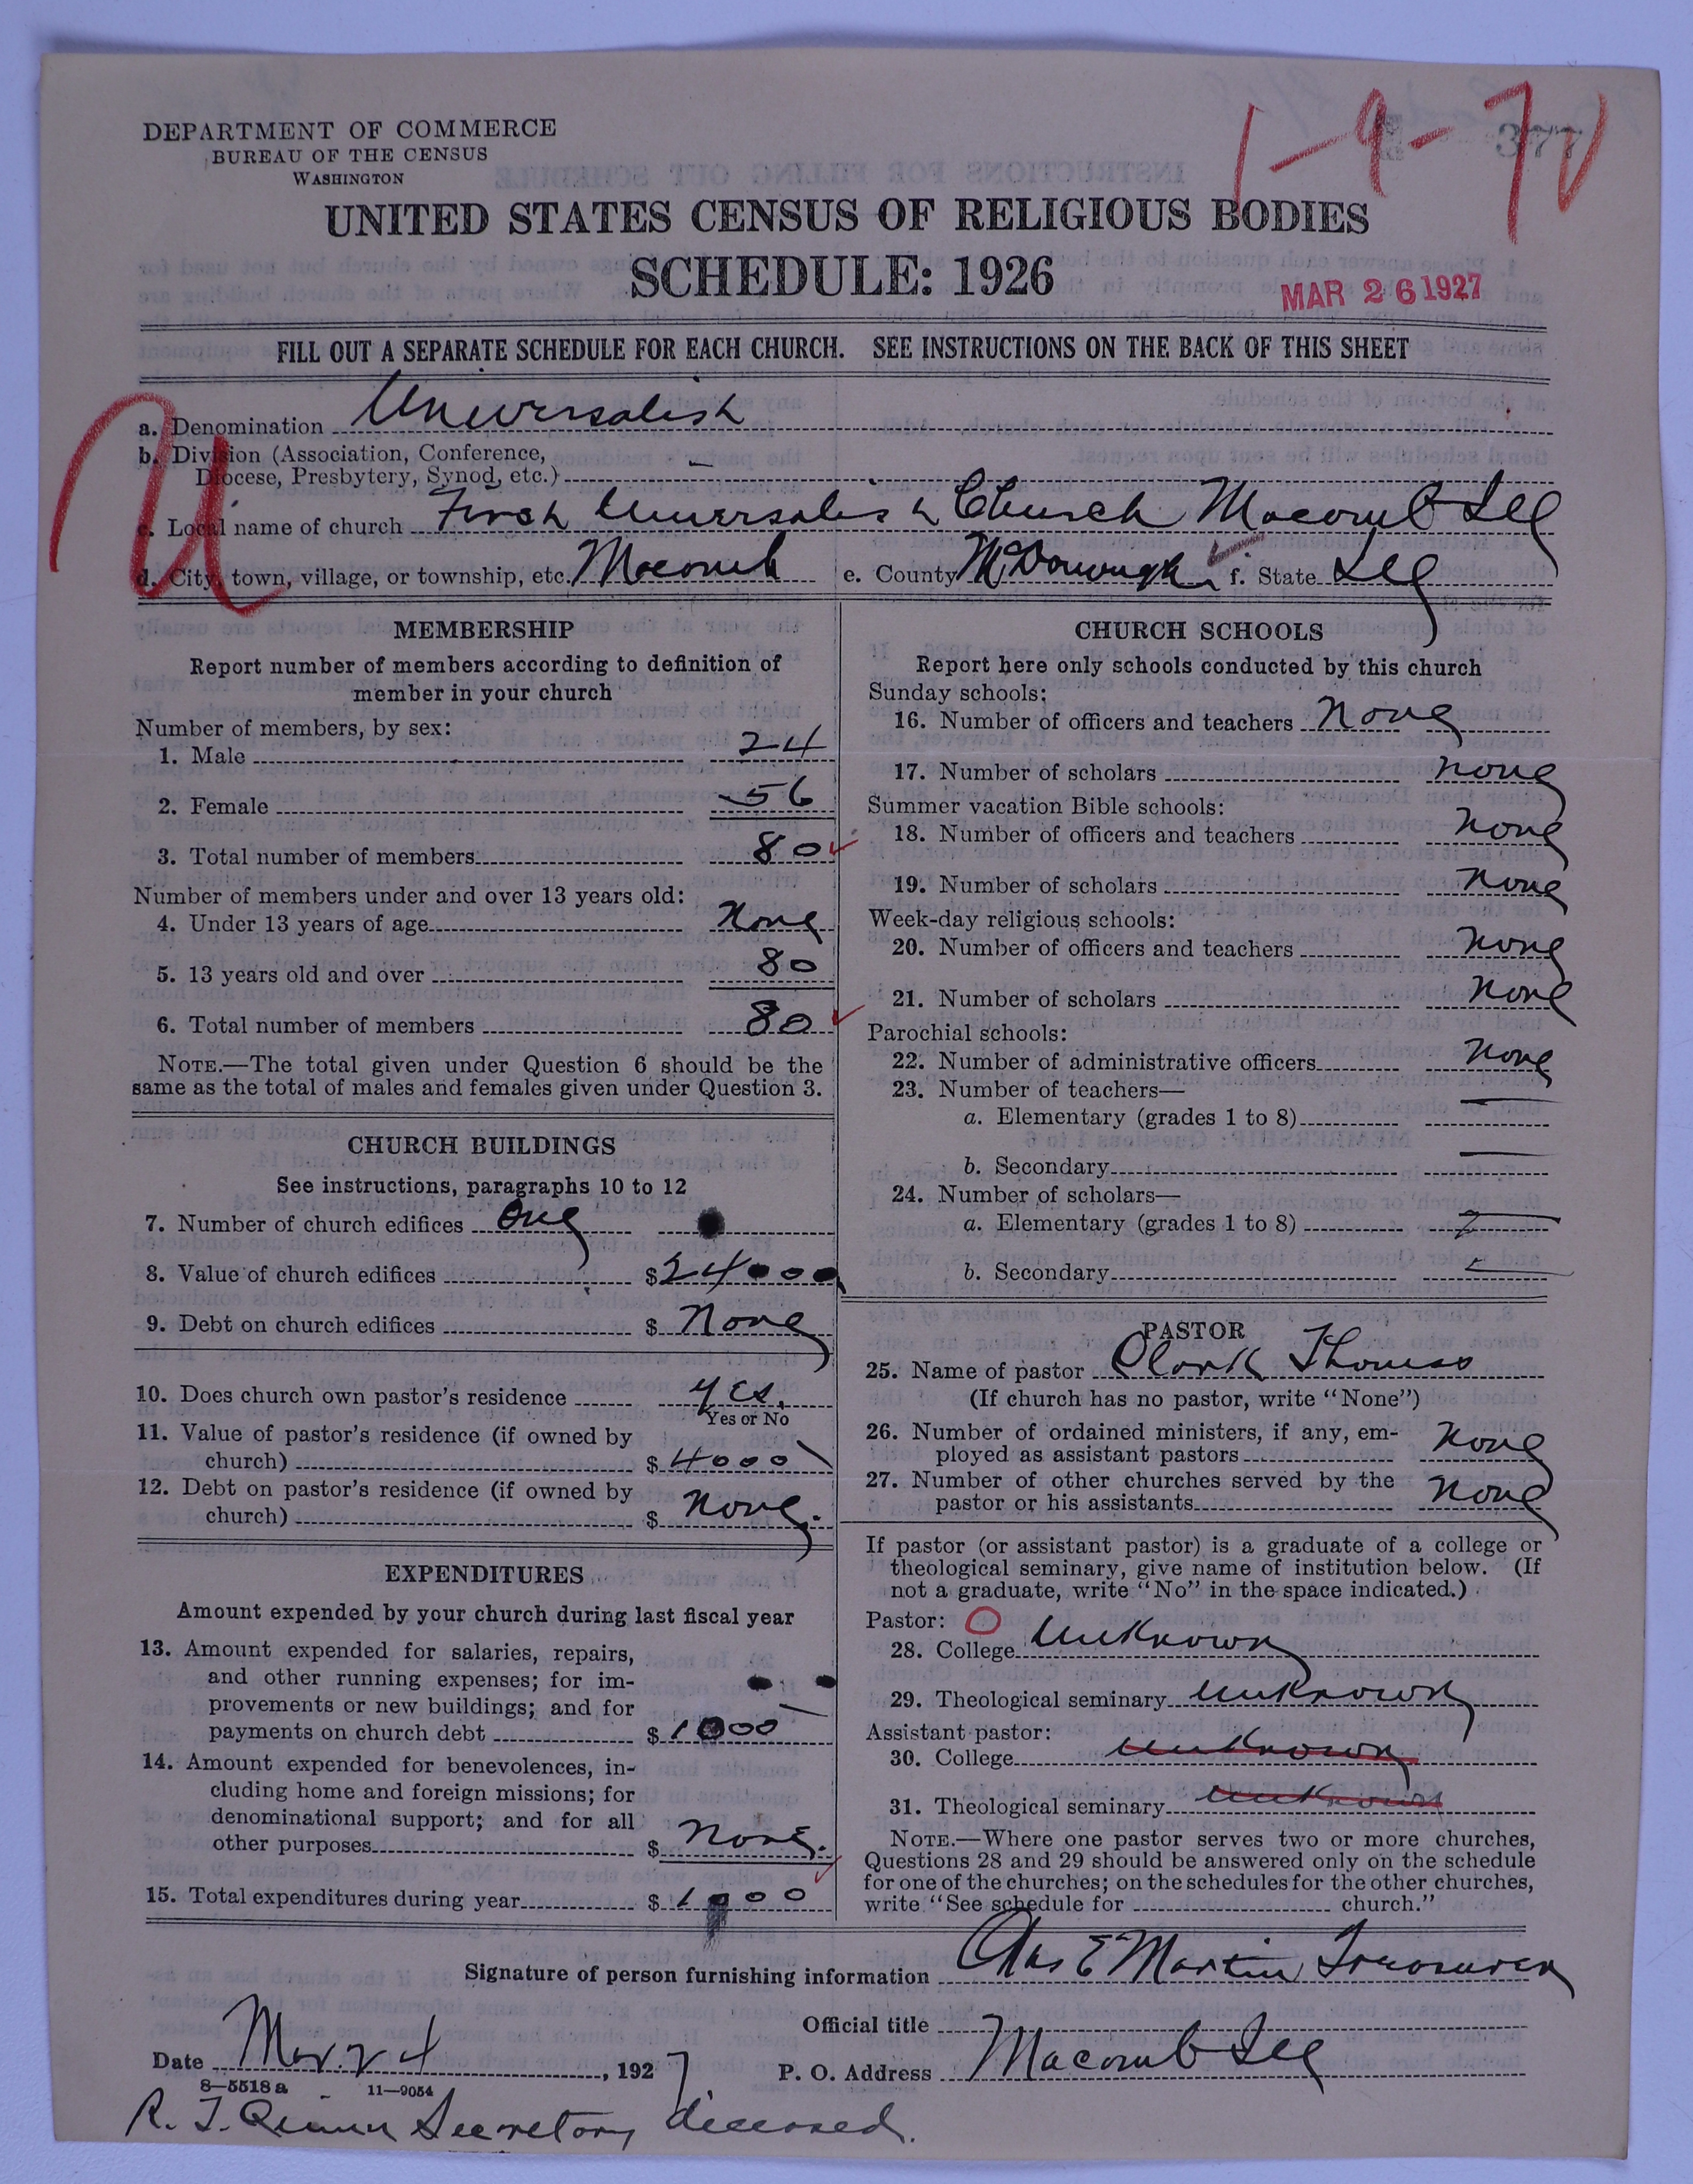 DEPARTMENT OF COMMERCE
BUREAU OF THE CENSUS
WASHINGTON
1-9-7
377
UNITED STATES CENSUS OF RELIGIOUS BODIES
SCHEDULE: 1926
MAR 26 1927
FILL OUT A SEPARATE SCHEDULE FOR EACH CHURCH. SEE INSTRUCTIONS ON THE BACK OF THIS SHEET
U
a. Denomination Universalist
b. Division (Association, Conference,
Diocese, Presbytery, Synod, etc.) –
c. Local name of church First Universalist Church Macomb Ill
d. City, town, village, or township, etc. Macomb e. County McDonough f. State Ill
MEMBERSHIP
Report number of members according to definition of
member in your church
Number of members, by sex:
1. Male 24
2. Female 56
3. Total number of members 80
Number of members under and over 13 years old:
4. Under 13 years of age None
5. 13 years old and over 80
6. Total number of members 80
NOTE.—The total given under Question 6 should be the
same as the total of males and females given under Question 3.
CHURCH BUILDINGS
See instructions, paragraphs 10 to 12
7. Number of church edifices One
8. Value of church edifices $24000
9. Debt on church edifices $ None
10. Does church own pastor's residence yes.
Yes or No
11. Value of pastor's residence (if owned by
church) $4000
12. Debt on pastor's residence (if owned by
church) $ None.
EXPENDITURES
Amount expended by your church during last fiscal year
13. Amount expended for salaries, repairs,
and other running expenses; for im-
provements or new buildings; and for
payments on church debt $1000
14. Amount expended for benevolences, in-
cluding home and foreign missions; for
denominational support; and for all
other purposes $ None.
15. Total expenditures during year $1000
CHURCH SCHOOLS
Report here only schools conducted by this church
Sunday schools:
16. Number of officers and teachers None
17. Number of scholars none
Summer vacation Bible schools:
18. Number of officers and teachers none
19. Number of scholars none
Week-day religious schools:
20. Number of officers and teachers none
21. Number of scholars none
Parochial schools:
22. Number of administrative officers none
23. Number of teachers—
a. Elementary (grades 1 to 8) —
b. Secondary —
24. Number of scholars—
a. Elementary (grades 1 to 8) —
b. Secondary —
PASTOR
25. Name of pastor Clark Thomas
(If church has no pastor, write "None")
26. Number of ordained ministers, if any, em-
ployed as assistant pastors none
27. Number of other churches served by the
pastor or his assistants none
If pastor (or assistant pastor) is a graduate of a college or
theological seminary, give name of institution below. (If
not a graduate, write "No" in the space indicated.)
Pastor: O
28. College Unknown
29. Theological seminary unknown
Assistant pastor:
30. College unknown
31. Theological seminary unknown
NOTE.—Where one pastor serves two or more churches,
Questions 28 and 29 should be answered only on the schedule
for one of the churches; on the schedules for the other churches,
write "See schedule for church."
Signature of person furnishing information Chas E Martin Treasurer
Official title
Date Mar. 24, 1927 P. O. Address Macomb Ill
8-5518 a 11-9054
R. T. Quinn Secretary deceased.